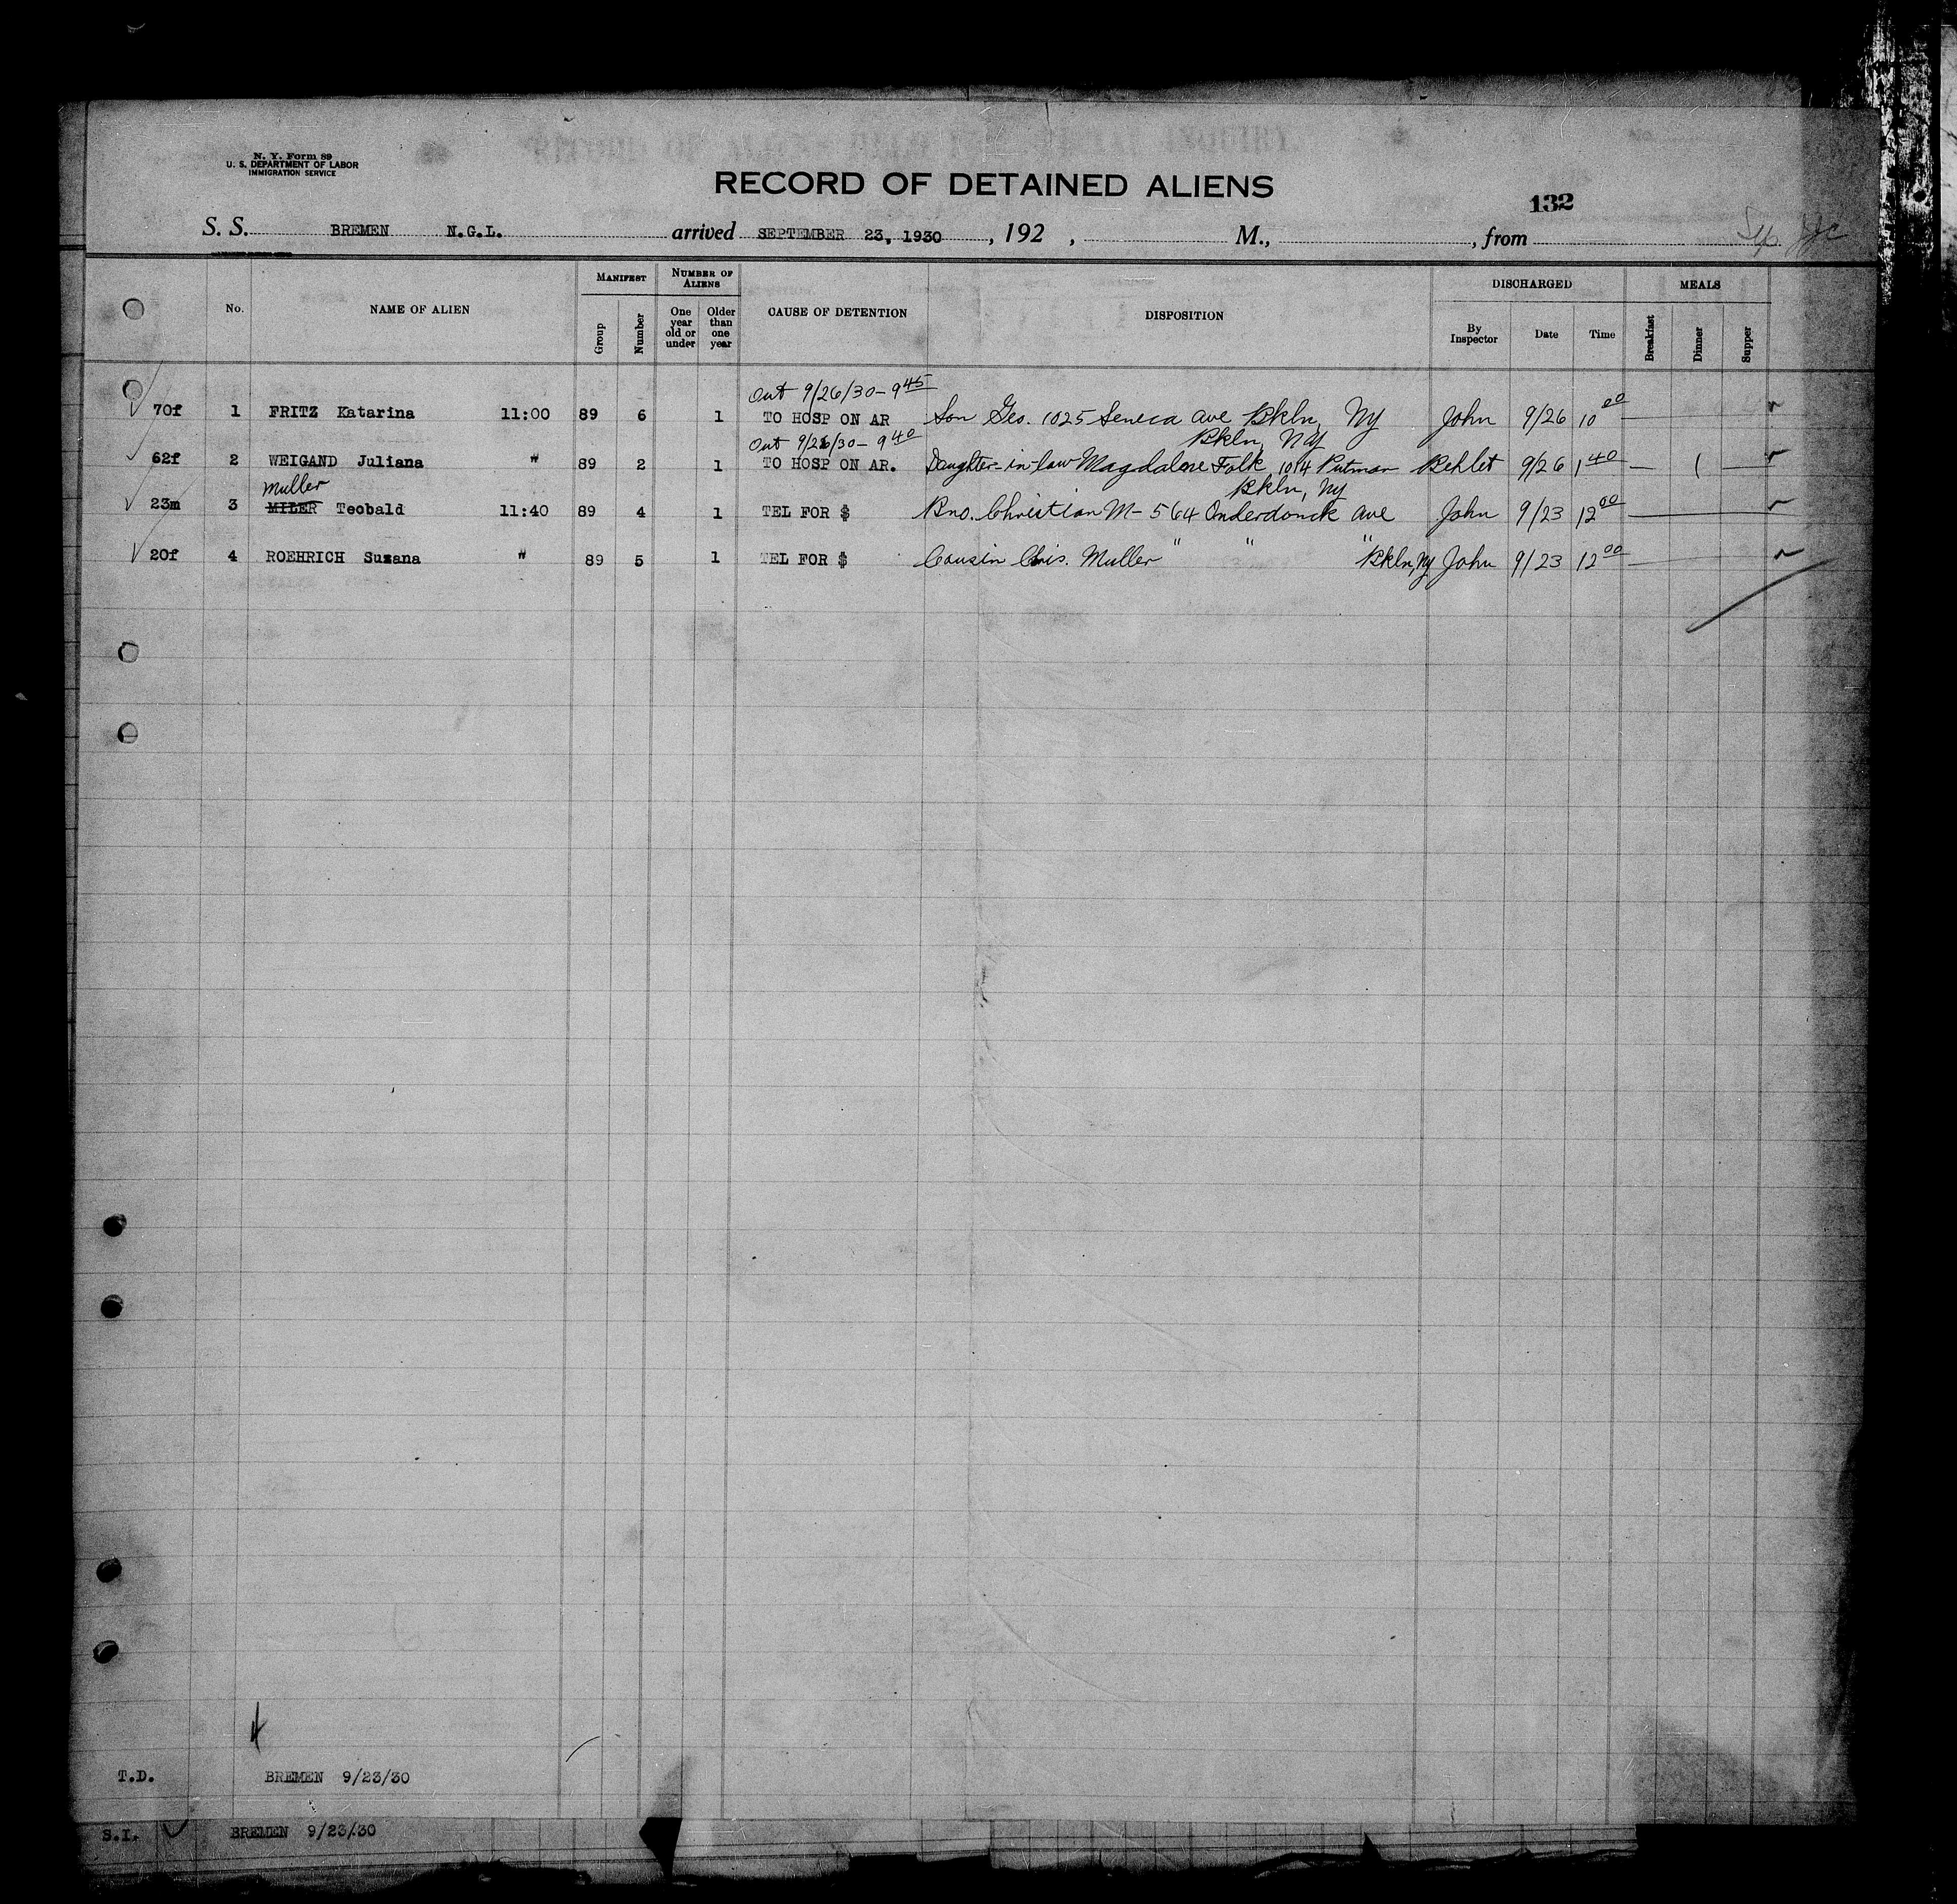 N. Y. Form 89
U. S. DEPARTMENT OF LABOR
IMMIGRATION SERVICE
RECORD OF DETAINED ALIENS
132
S. S. BREMEN N.G.L. arrived SEPTEMBER 23, 1930, 192 , M., , from
No. NAME OF ALIEN MANIFEST Group Number NUMBER OF ALIENS One year old or under Older than one year CAUSE OF DETENTION DISPOSITION DISCHARGED By Inspector Date Time MEALS Breakfast Dinner Supper
Out 9/26/30 - 9 45
70f 1 FRITZ Katarina 11:00 89 6 1 TO HOSP ON AR Son Geo. 1025 Seneca Ave Bkln, NY John 9/26 10 00
Out 9/26/30 - 9 40 Bkln, NY
62f 2 WEIGAND Juliana " 89 2 1 TO HOSP ON AR. Daughter-in-law Magdalene Falk 1014 Putman Behlet 9/26 1 40 1
Muller Bkln, NY
23m 3 MILER Teobald 11:40 89 4 1 TEL FOR $ Bro. Christian M- 564 Onderdonck Ave John 9/23 12 00
20f 4 ROEHRICH Suzana " 89 5 1 TEL FOR $ Cousin Chris. Muller " " " Bkln, NY John 9/23 12 00
T.D. BREMEN 9/23/30
S.I. BREMEN 9/23/30